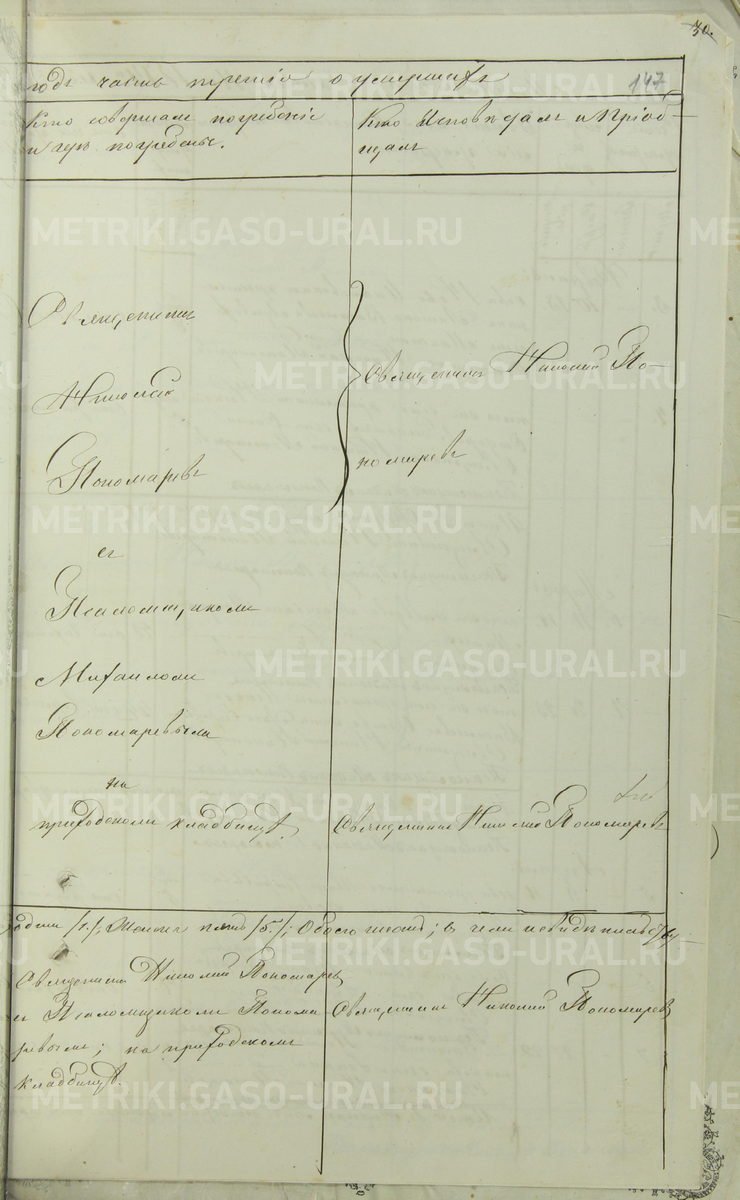 30.
147
годъ часть третiя о умершихъ
Кто совершалъ погребенiе
и гдѣ погребены.
Кто исповѣдалъ и прiоб-
щалъ
Священникъ
Николай
Пономаревъ
съ
Псаломщикомъ
Михаиломъ
Пономаревымъ
на
приходскомъ кладбищѣ.
Священникъ Николай По-
номаревъ
Священникъ Николай Пономаревъ
одинъ /1/, женска пять /5/; обоего шесть;
Священникъ Николай Пономаревъ
съ Псаломщикомъ Понома
ревымъ; на приходскомъ
кладбищѣ.
Священникъ Николай Пономаревъ
METRIKI.GASO-URAL.RU